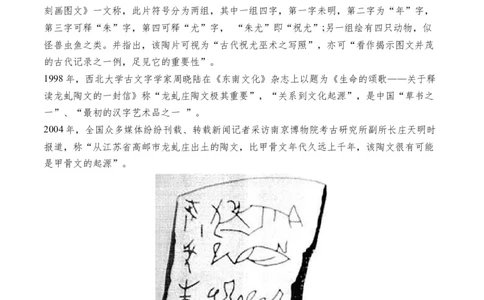 刻画图文》一文称，此片符号分为两组，其中一组四字，第一字未明，第二字为“年”字，
第三字可释“朱”字，第四可释“尤”字， “朱尤即“祝尤”;另一组绘有四只动物，似
怪兽虫鱼之类。并指出，该陶片可视为“古代祝尤巫术之写照”，亦可“看作揭示图文并茂
的古代记录之一例，足见它的重要性”。
1998年，西北大学古文字学家周晓陆在《东南文化》杂志上以题为《生命的颂歌——关于释
读龙虬陶文的一封信》称“龙虬庄陶文极其重要”，“关系到文化起源”，是中国“草书之
一”、“最初的汉字艺术品之一 ”。
2004年，全国众多媒体纷纷刊载、转载新闻记者采访南京博物院考古研究所副所长庄天明时
报道，称“从江苏省高邮市龙虬庄出土的陶文，比甲骨文年代久远上千年，该陶文很有可能
是甲骨文的起源”。